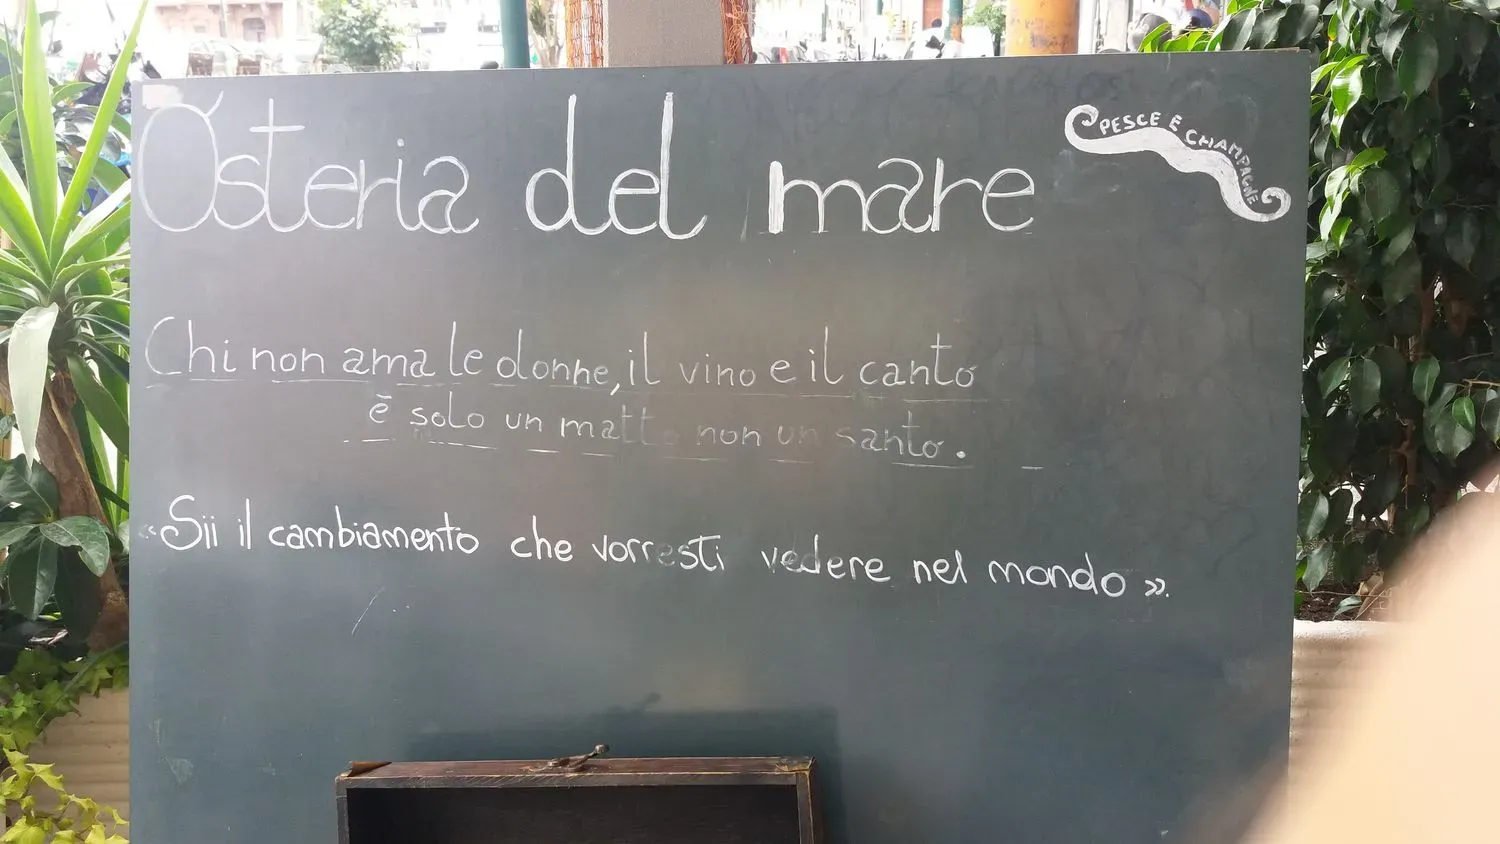 Osteria del mare
PESCE E CHAMPAGNE
Chi non ama le donne, il vino e il canto
è solo un matto non un santo.
«Sii il cambiamento che vorresti vedere nel mondo».